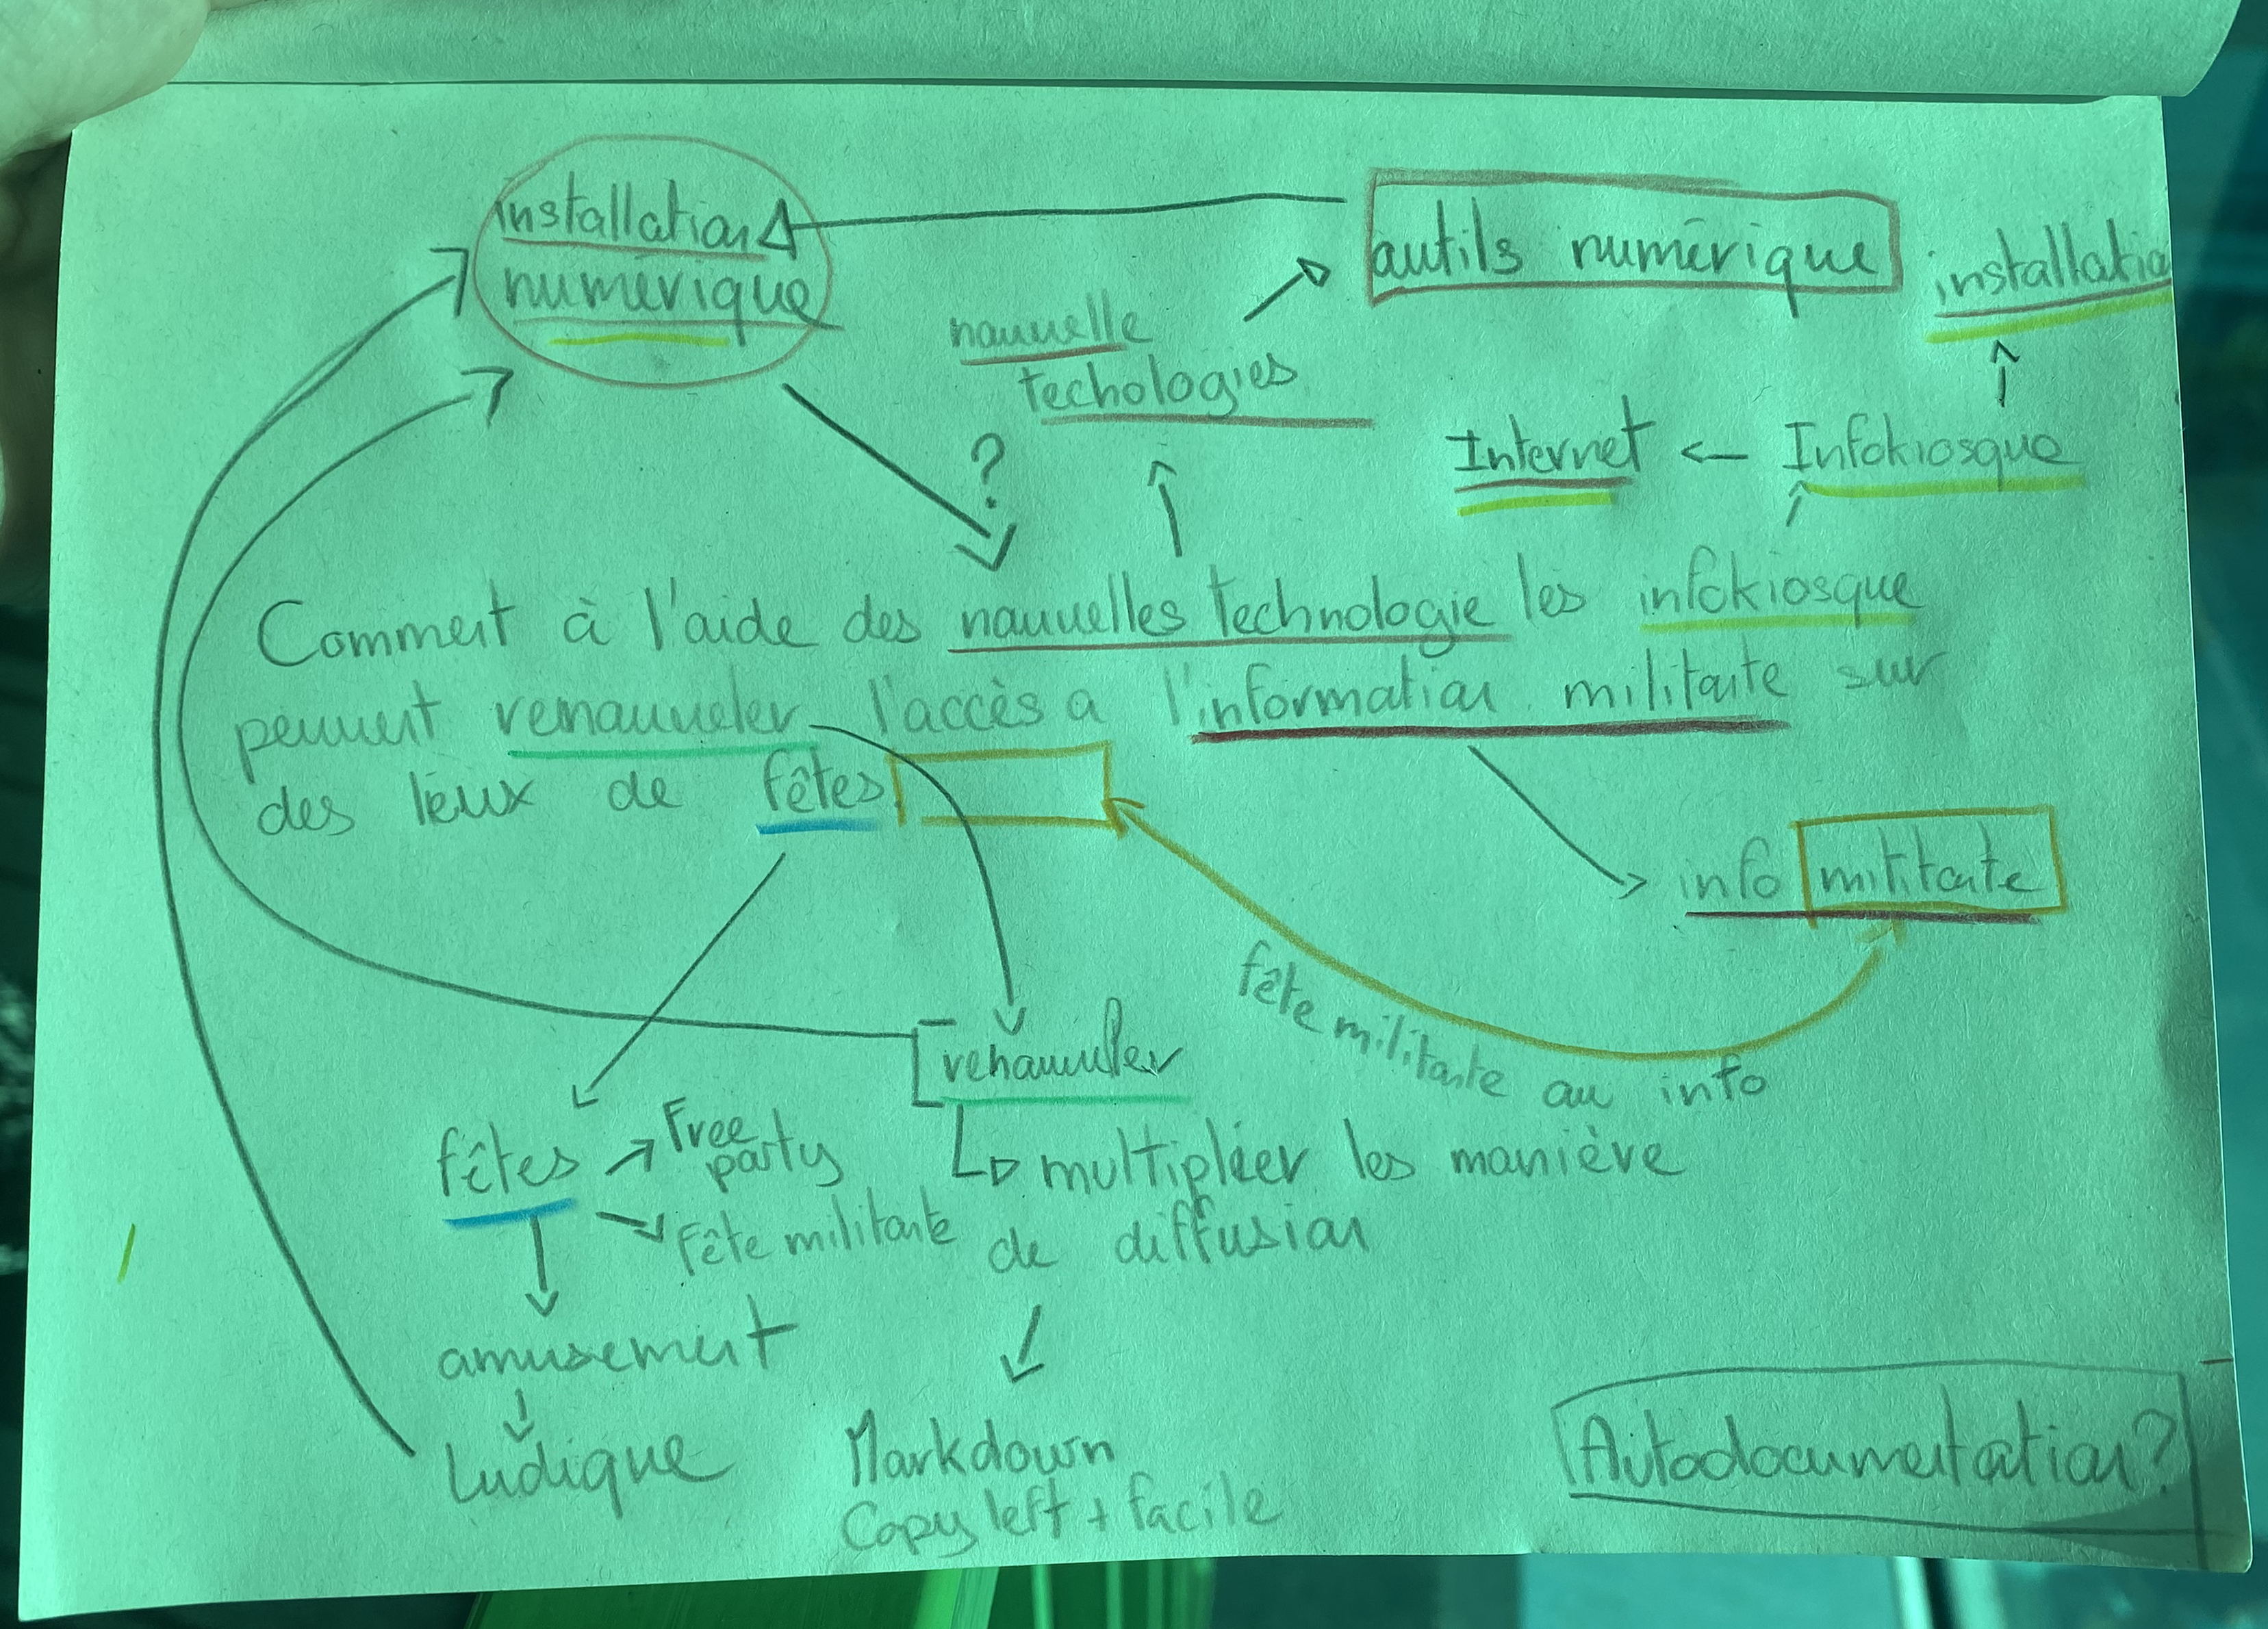 installation
numérique
outils numérique
installatio
nouvelle
techologies
?
Internet <- Infokiosque
Comment à l'aide des nouvelles technologie les infokiosque
peuvent renouveler l'accès a l'information militante sur
des lieux de fêtes
info militante
fête militante ou info
renouveler
fêtes
Free
party
multiplier les manière
fête militante
de diffusion
amusement
Ludique
Markdown
Copyleft + facile
Autodocumentation?